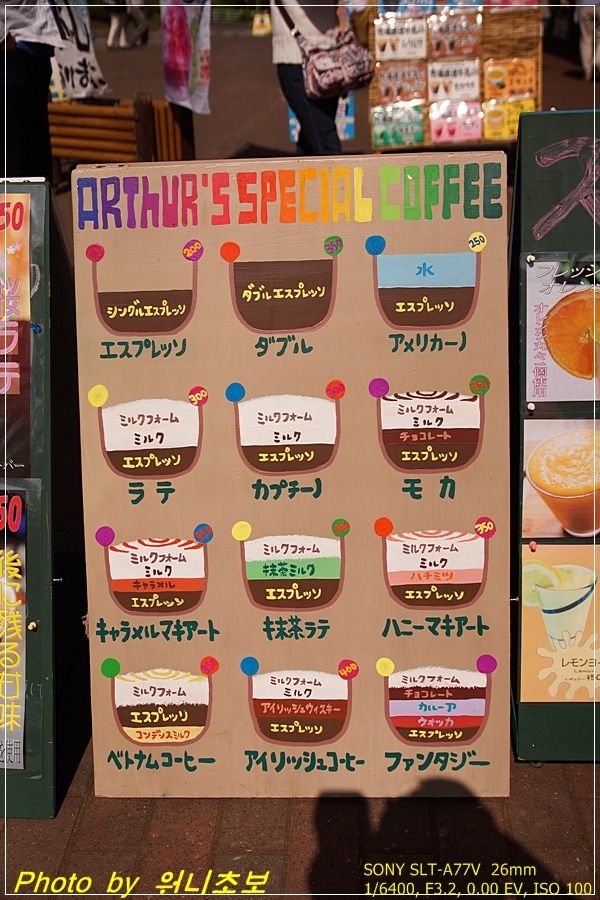 ARTHUR'S SPECIAL COFFEE
200
シングルエスプレッソ
エスプレッソ
350
ダブルエスプレッソ
ダブル
250
水
エスプレッソ
アメリカーノ
300
ミルクフォーム
ミルク
エスプレッソ
ラテ
300
ミルクフォーム
ミルク
エスプレッソ
カプチーノ
350
ミルクフォーム
ミルク
チョコレート
エスプレッソ
モカ
ミルクフォーム
ミルク
キャラメル
エスプレッソ
キャラメルマキアート
ミルクフォーム
抹茶ミルク
エスプレッソ
抹茶ラテ
350
ミルクフォーム
ミルク
ハチミツ
エスプレッソ
ハニーマキアート
ミルクフォーム
エスプレッソ
コンデンスミルク
ベトナムコーヒー
400
ミルクフォーム
ミルク
アイリッシュウィスキー
エスプレッソ
アイリッシュコーヒー
ミルクフォーム
チョコレート
カルーア
ウォッカ
エスプレッソ
ファンタジー
50
ラテ
50
後に残る甘味
使用
フレッシュ
オレンジ
オレンジ丸々一個使用
Photo by 워니초보
SONY SLT-A77V 26mm
1/6400, F3.2, 0.00 EV, ISO 100